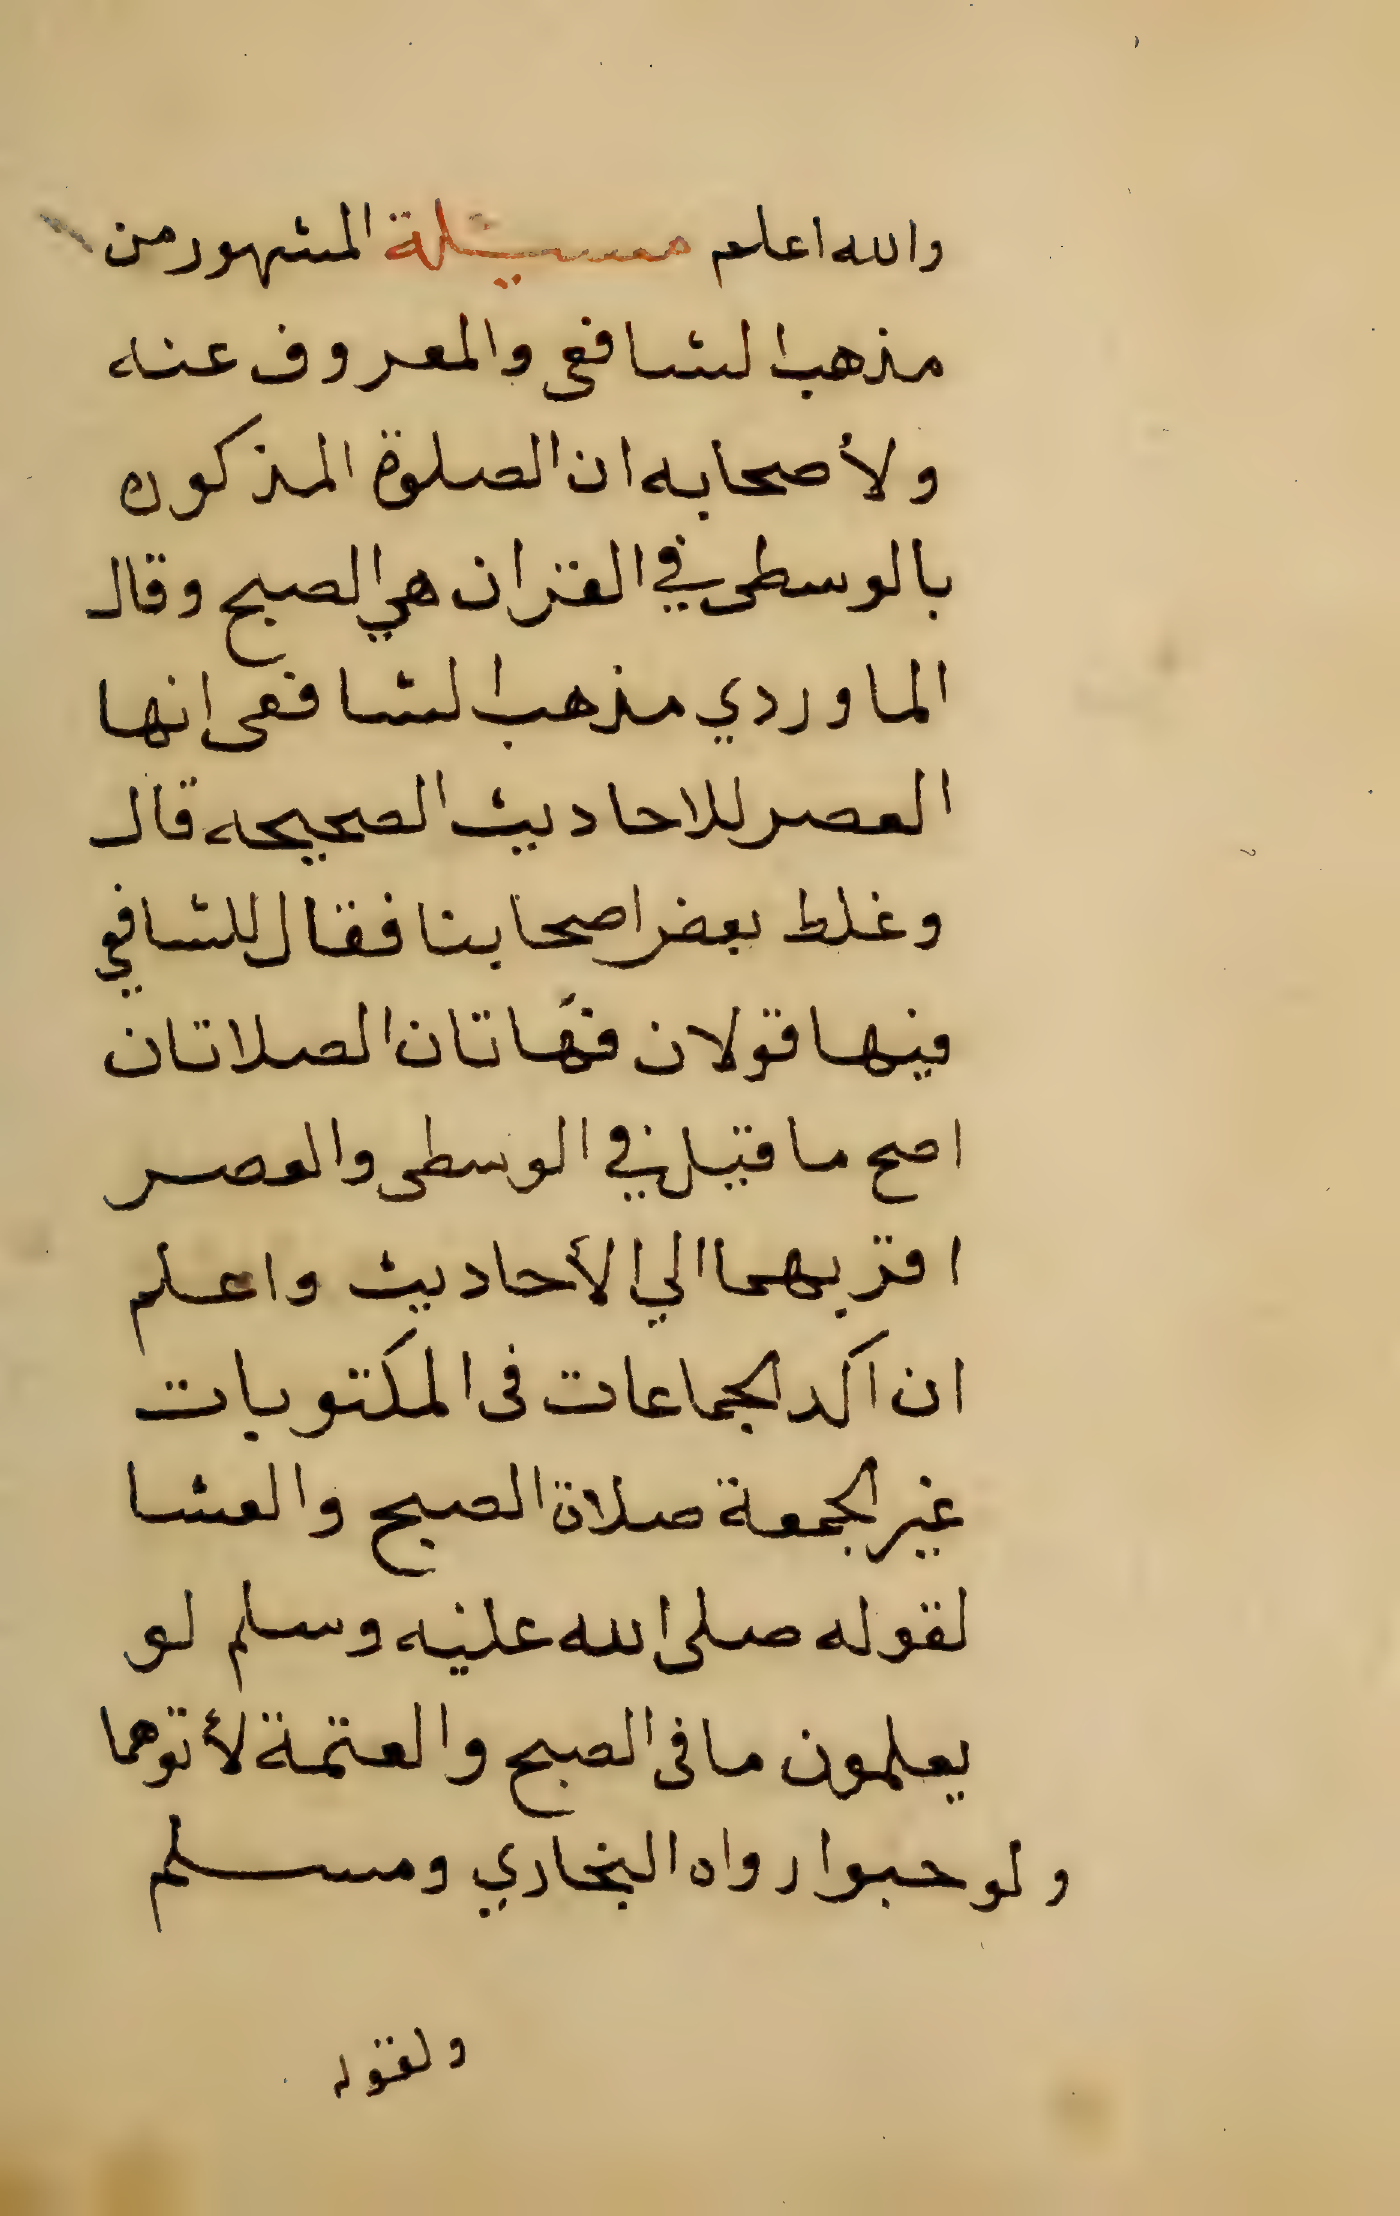 والله اعلم مسيلة المشهور من
مذهب الشافعى والمعروف عنه
ولأصحابه ان الصلوة المذكوره
بالوسطى في القران هي الصبح وقال
الماوردي مذهب الشافعى انها
العصر للاحاديث الصحيحه قال
وغلط بعض اصحابنا فقال للشافعي
فيها قولان فهاتان الصلاتان
اصح ما قيل في الوسطى والعصر
اقربهما الي الأحاديث واعلم
ان اكد الجماعات فى المكتوبات
غير الجمعة صلاة الصبح والعشا
لقوله صلى الله عليه وسلم لو
يعلمون ما فى الصبح والعتمة لأتوهما
ولو حبوا رواه البخاري ومسلم
ولقوله